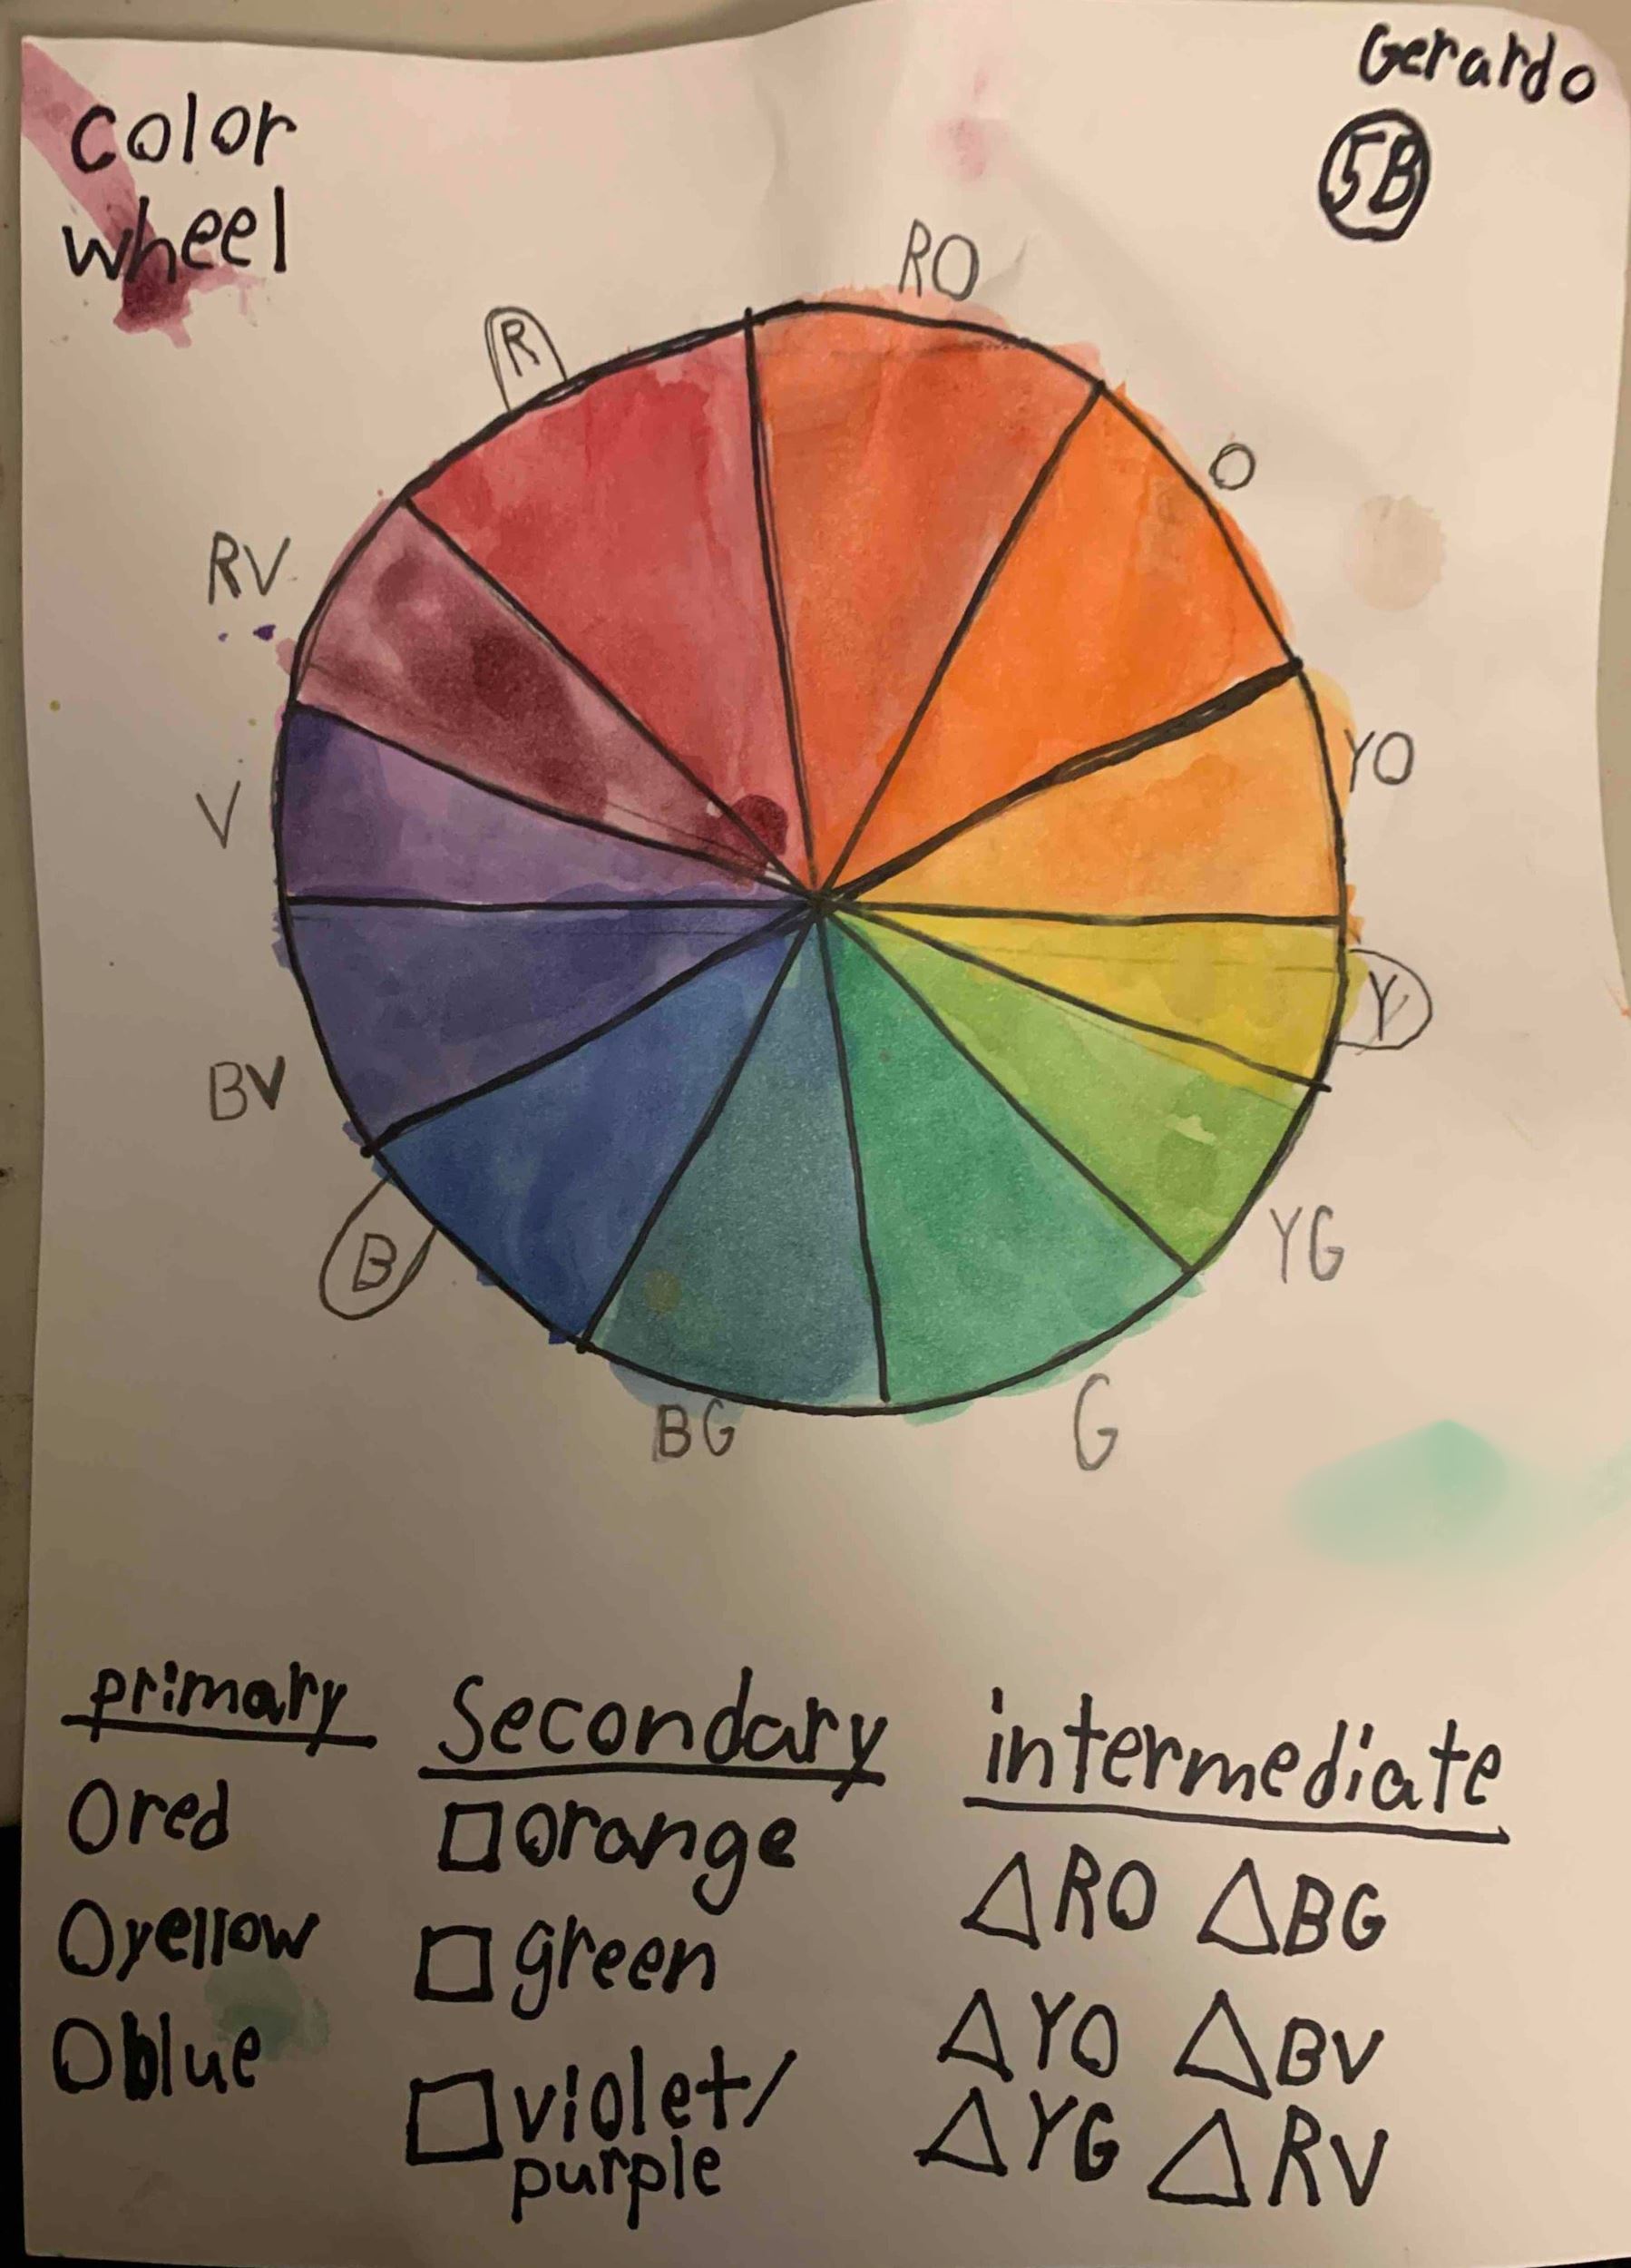 Gerardo
5B
color
wheel
RO
R
O
RV
YO
V
Y
BV
B
YG
BG
G
primary
red
yellow
blue
Secondary
orange
green
violet/
purple
intermediate
RO BG
YO BV
YG RV